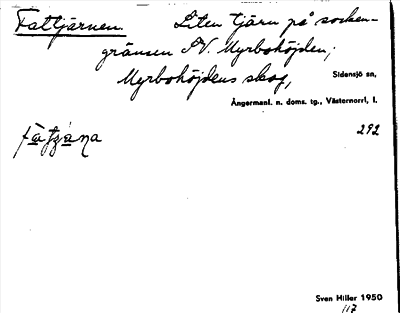 Fattjärnen. Liten tjärn på socken-
gränsen SV. Myrbohöjden,
Myrbohöjdens skog,
Sidensjö sn,
Ångermanl. n. doms. tg., Västernorrl, l.
292
Sven Hiller 1950
117